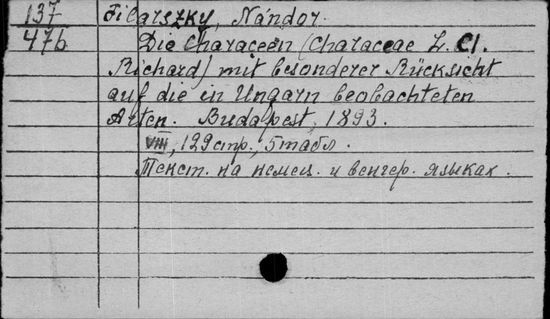 137 Filarszky, Nándor.
476 Die Characeen (Characeae L. Cl.
Richard) mit besonderer Rücksicht
auf die in Ungarn beobachteten
Arten. Budapest, 1893.
VIII, 129 стр., 5 табл.
Текст. на немец. и венгер. языках.